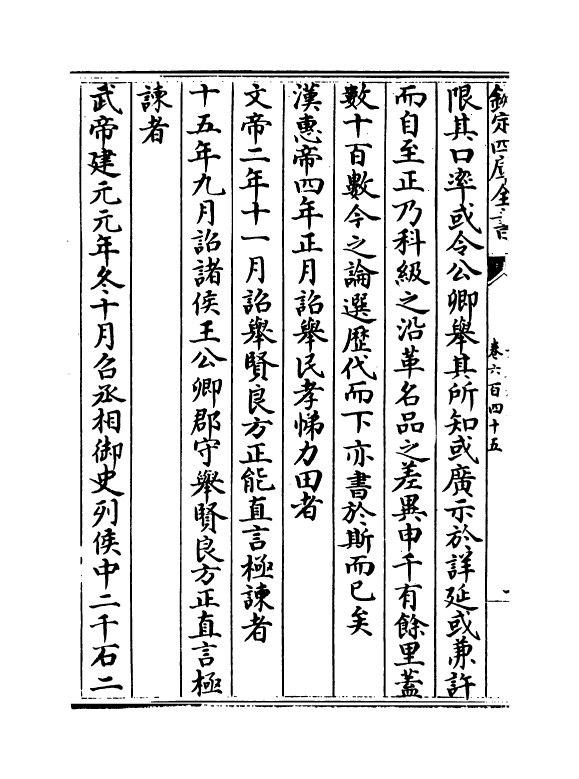 欽定四庫全書
卷六百四十五
限其口率或令公卿舉其所知或廣示於詳延或兼許
而自至正乃科級之沿革名品之差異申千有餘里蓋
數十百數今之論選歷代而下亦書於斯而已矣
漢惠帝四年正月詔舉民孝悌力田者
文帝二年十一月詔舉賢良方正能直言極諫者
十五年九月詔諸侯王公卿郡守舉賢良方正直言極
諫者
武帝建元元年冬十月召丞相御史列侯中二千石二